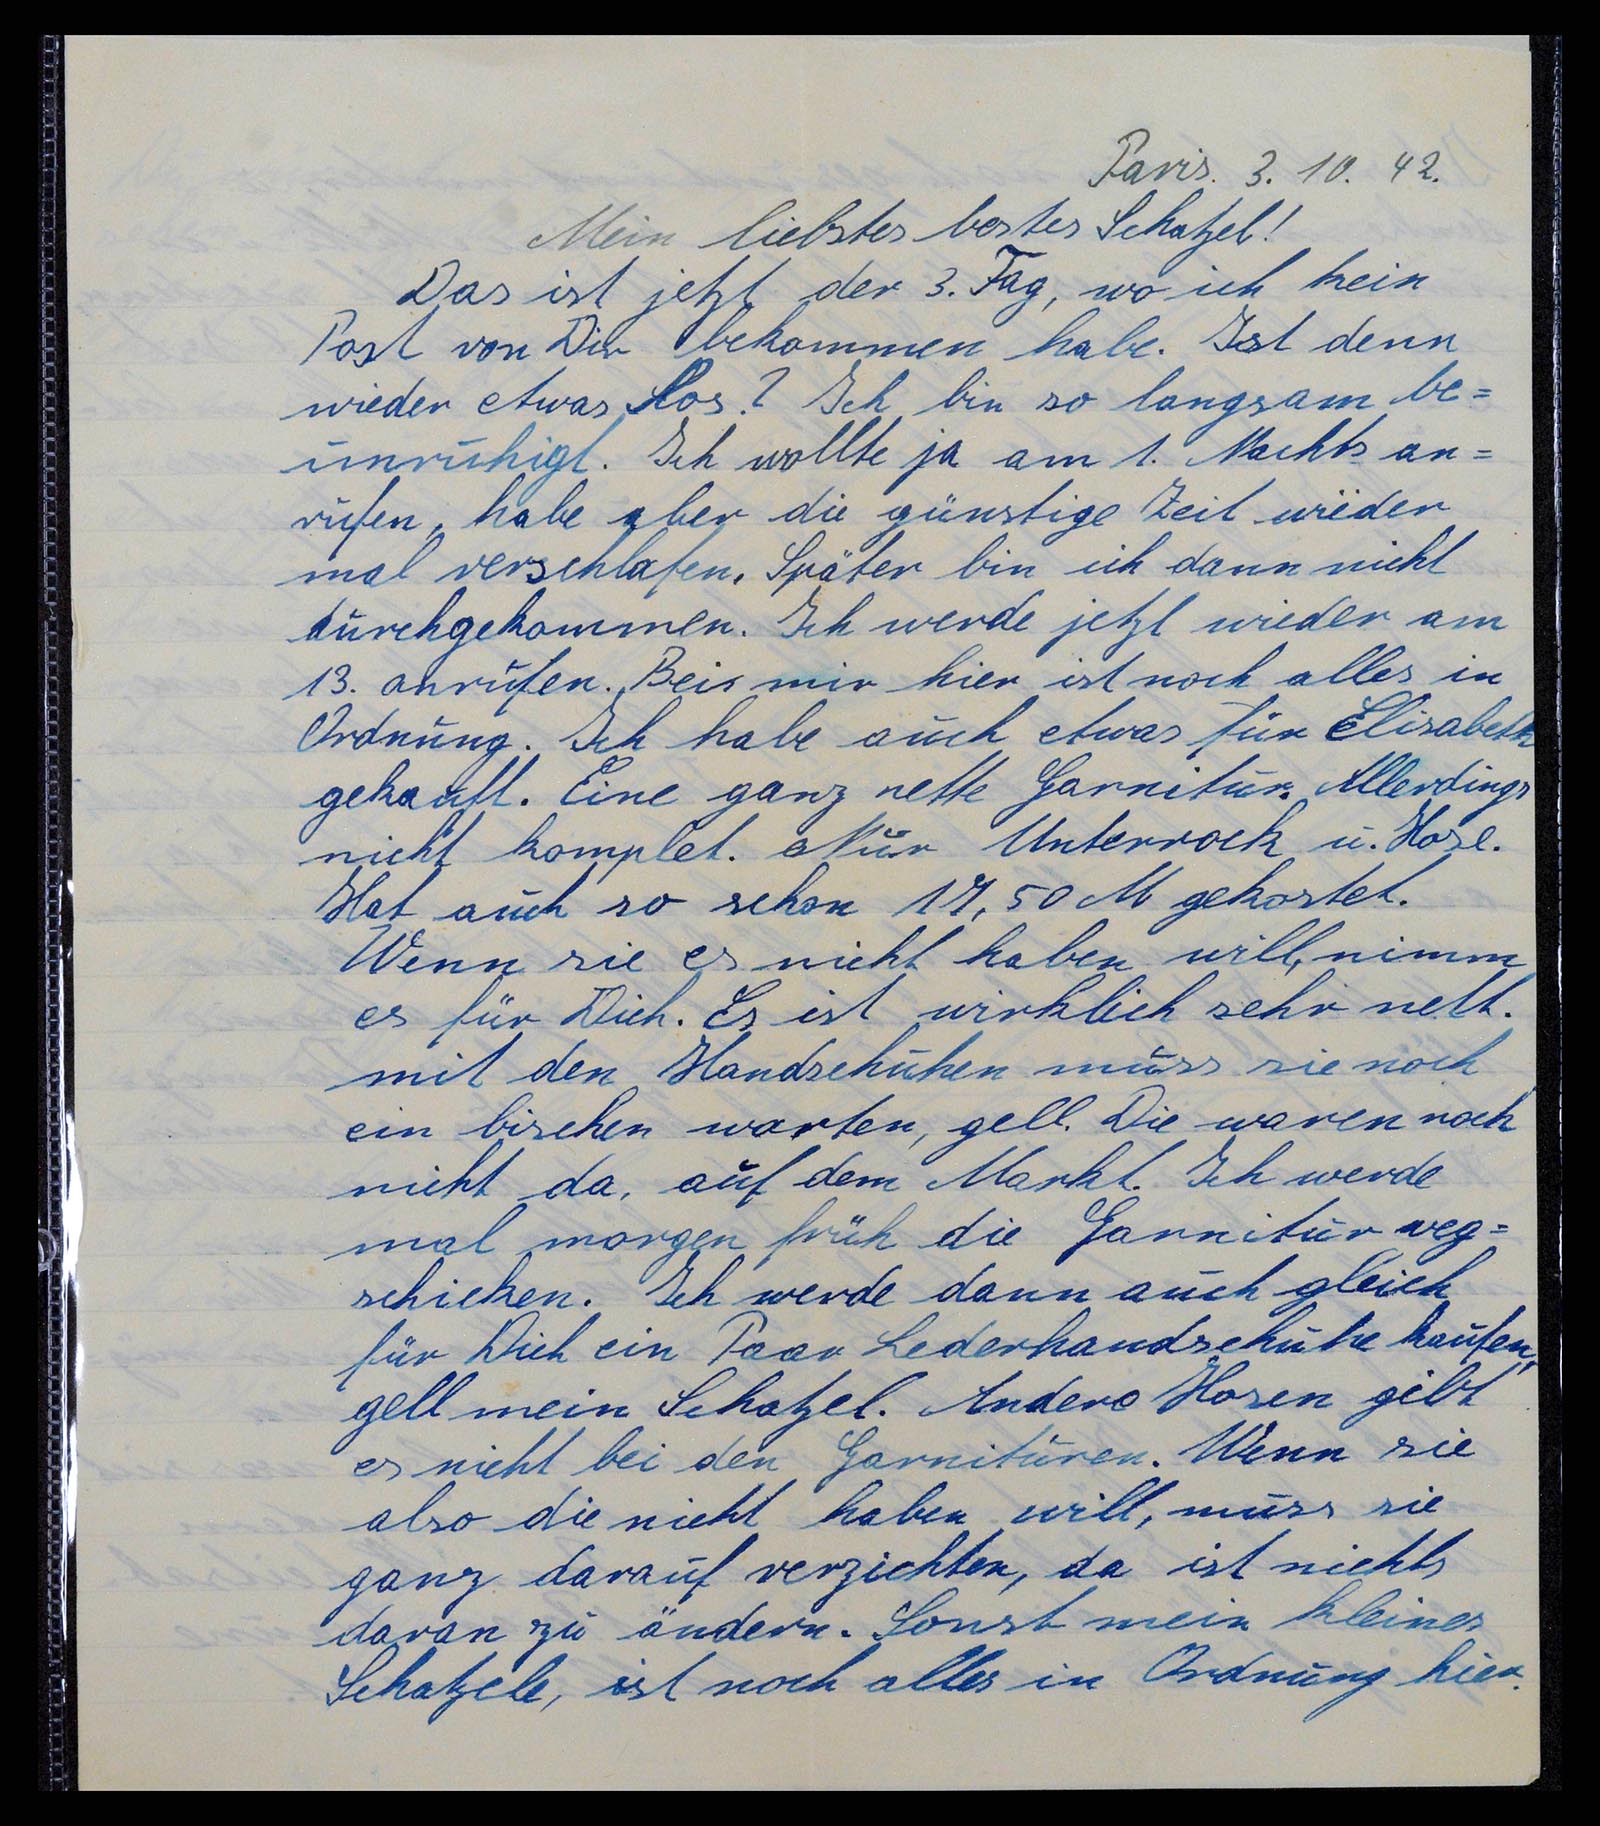 Paris. 3. 10. 42.
Mein liebstes bestes Schatzel!
Das ist jetzt der 3. Tag, wo ich kein
Post von Dir bekommen habe. Ist denn
wieder etwas los? Ich bin so langsam be=
unruhigt. Ich wollte ja am 1. Nachts an=
rufen, habe aber die günstige Zeit wieder
mal verschlafen. Später bin ich dann nicht
durchgekommen. Ich werde jetzt wieder am
13. anrufen. Bei mir hier ist noch alles in
Ordnung. Ich habe auch etwas für Elisabeth
gekauft. Eine ganz nette Garnitur. Allerdings
nicht komplet. Nur Unterrock u. Hose.
Hat auch so schon 17,50 M gekostet.
Wenn sie es nicht haben will, nimm
es für Dich. Es ist wirklich sehr nett.
mit den Handschuhen muss sie noch
ein bischen warten, gell. Die waren noch
nicht da, auf dem Markt. Ich werde
mal morgen früh die Garnitur weg=
schicken. Ich werde dann auch gleich
für Dich ein Paar Lederhandschuhe kaufen,
gell mein Schatzel. Andere Hosen gibt
es nicht bei den Garnituren. Wenn sie
also die nicht haben will, muss sie
ganz darauf verzichten, da ist nichts
daran zu ändern. Sonst mein kleines
Schatzele, ist noch alles in Ordnung hier.